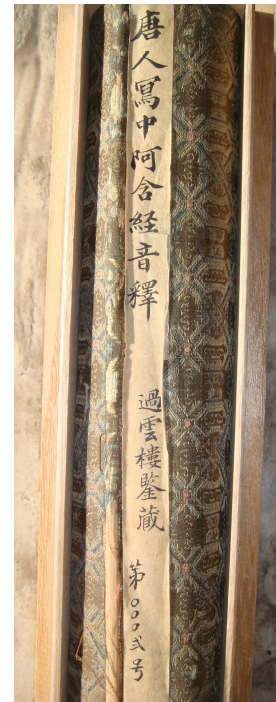 唐人寫中阿含経音釋
過雲樓鑒藏
第000弍号